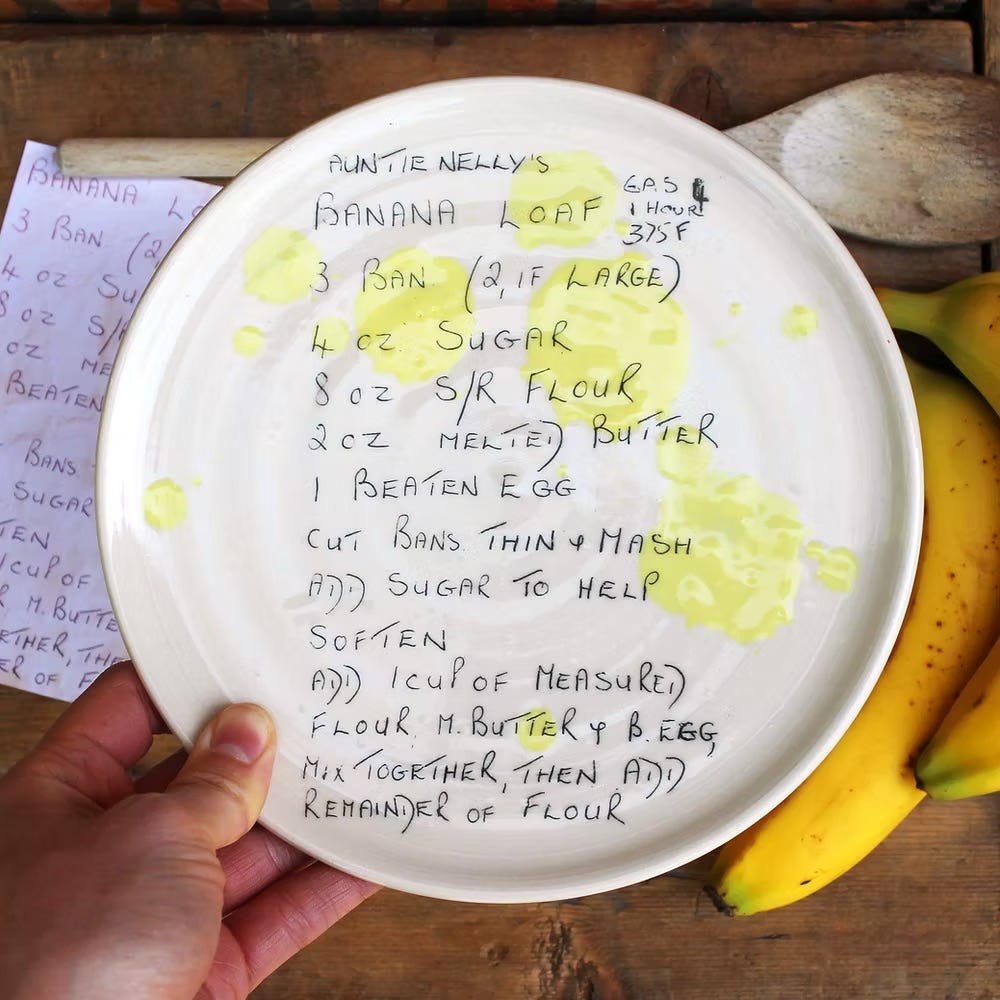 AUNTIE NELLY'S
BANANA LOAF
GAS 4
1 HOUR
375F
3 BAN (2, IF LARGE)
4 OZ SUGAR
8 OZ S/R FLOUR
2 OZ MELTED BUTTER
1 BEATEN EGG
CUT BANS. THIN & MASH
ADD SUGAR TO HELP
SOFTEN
ADD 1 CUP OF MEASURED
FLOUR, M. BUTTER & B. EGG,
MIX TOGETHER, THEN ADD
REMAINDER OF FLOUR
BANANA
3 BAN (2
4 OZ SU
8 OZ S/R
OZ ME
BEATEN
BANS
SUGAR
TEN
1 CUP OF
R M. BUTTE
ETHER, THE
ER OF F